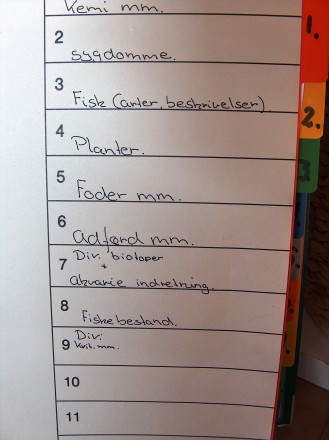 Kemi mm.
2
sygdomme.
3
Fisk (arter, beskrivelser)
4
Planter.
5
Foder mm.
6
adfærd mm.
7
Div. biotoper
+
akvarie indretning.
8
Fiskebestand.
9
Div.
Kvit. mm.
10
11
1.
2.
3